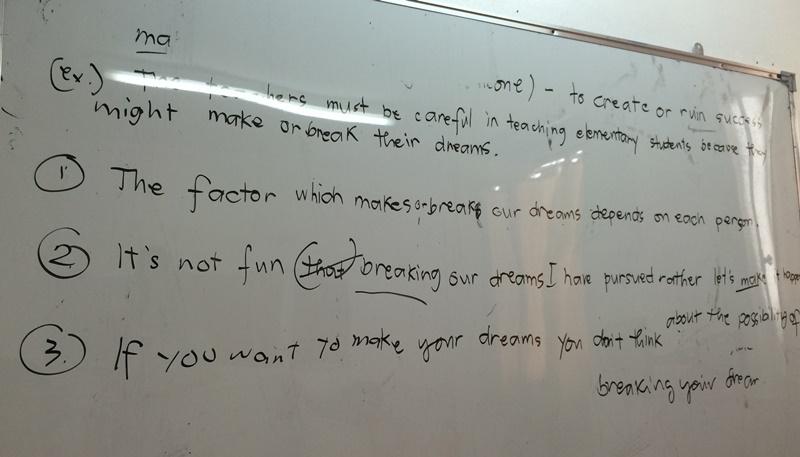 ma
one) - to create or ruin success
(ex.) The teachers must be careful in teaching elementary students because they
might make or break their dreams.
1 The factor which makes or breaks our dreams depends on each person.
2 It's not fun (that) breaking our dreams I have pursued rather let's make it happen
3. If you want to make your dreams you don't think about the possibility of
breaking your dream